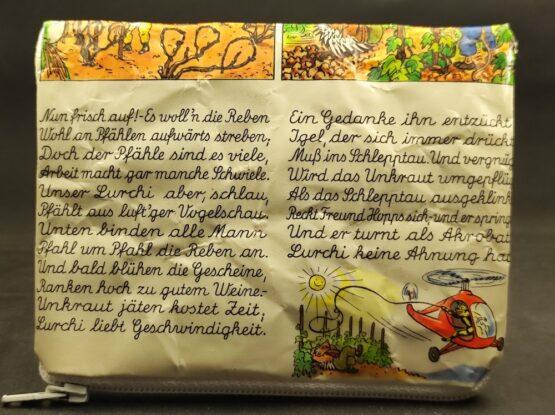 Nun frisch auf!-Es woll'n die Reben
Wohl an Pfählen aufwärts streben;
Doch der Pfähle sind es viele,
Arbeit macht gar manche Schwiele.
Unser Lurchi aber, schlau,
Pfählt aus luft'ger Vogelschau.
Unten binden alle Mann
Pfahl um Pfahl die Reben an.
Und bald blühen die Gescheine,
Ranken hoch zu gutem Weine.-
Unkraut jäten kostet Zeit;
Lurchi liebt Geschwindigkeit.
Ein Gedanke ihn entzückt
Igel, der sich immer drückt
Muß ins Schlepptau. Und vergnü
Wird das Unkraut umgepflü
Als das Schlepptau ausgeklink
Reckt Freund Hopps sich-und er spring
Und er turnt als Akrobat
Lurchi keine Ahnung ha